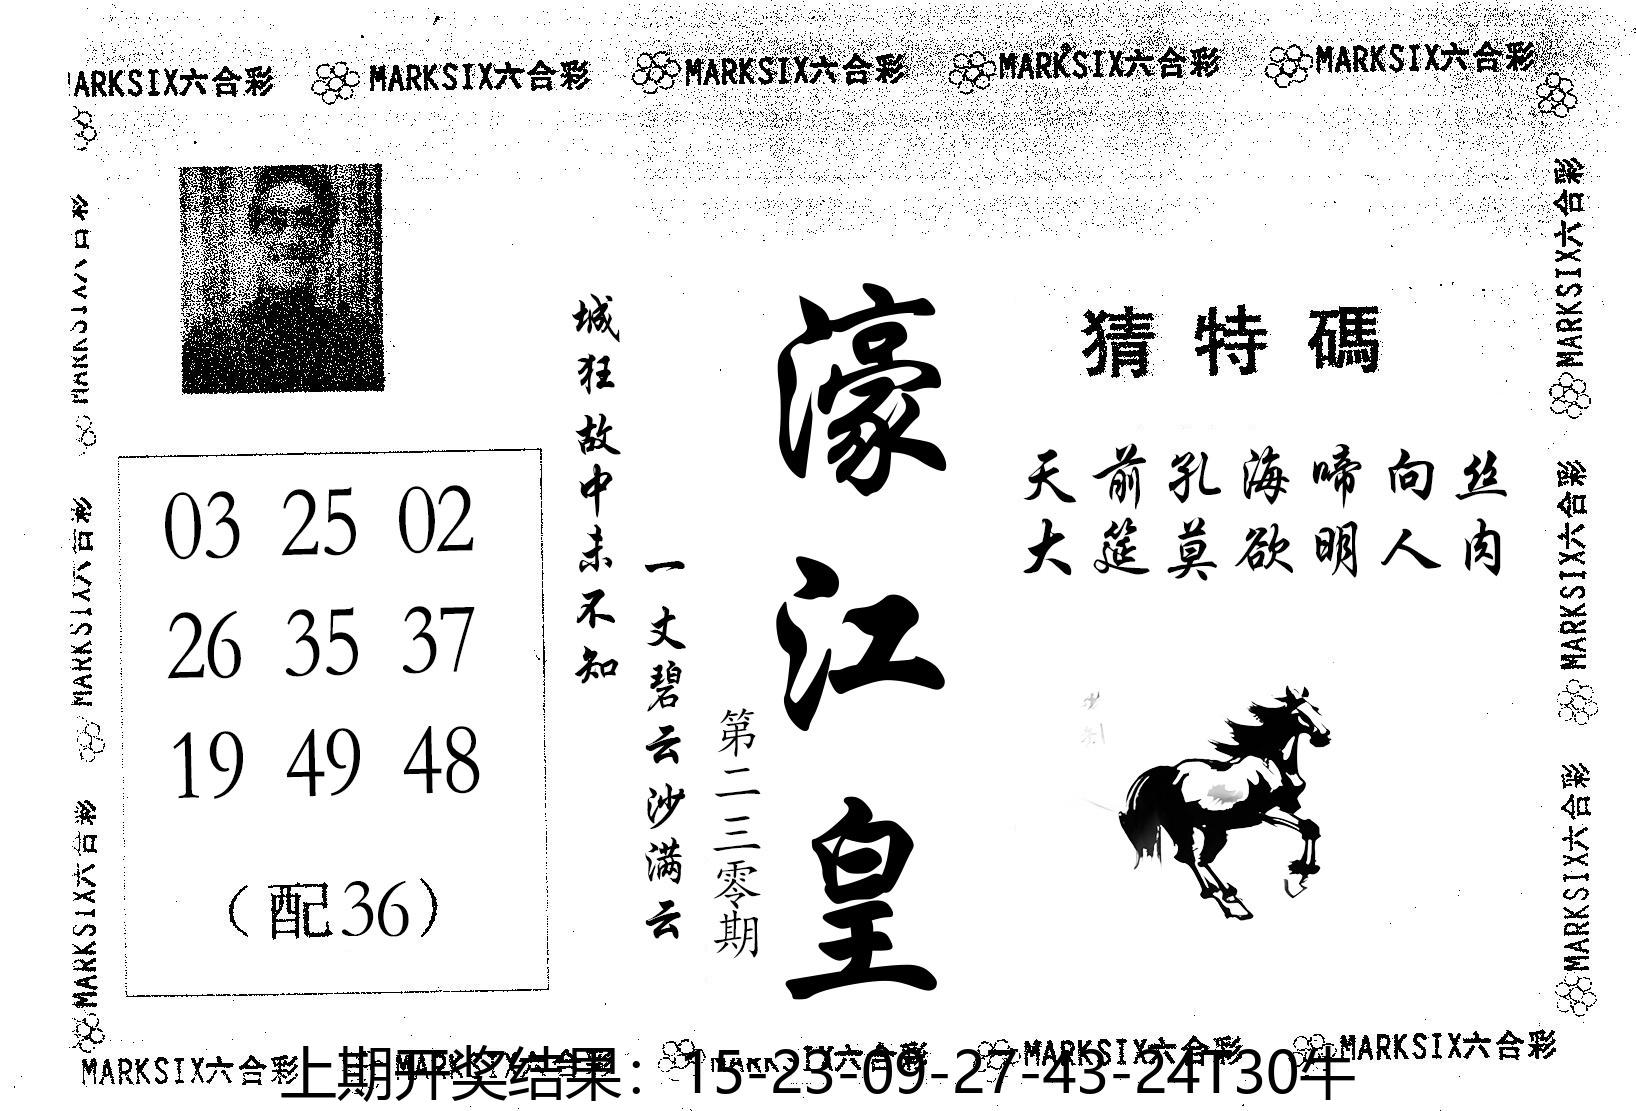 MARKSIX六合彩 MARKSIX六合彩 MARKSIX六合彩 MARKSIX六合彩 MARKSIX六合彩
MARKSIX六合彩
MARKSIX六合彩
MARKSIX六合彩
猜特碼
天前孔海啼向丝
大筵莫欲明人肉
濠江皇
第二三零期
一丈碧云沙满云
城狂故中未不知
03 25 02
26 35 37
19 49 48
（配36）
MARKSIX六合彩
MARKSIX六合彩
MARKSIX六合彩
MARKSIX六合彩 MARKSIX六合彩 MARKSIX六合彩 MARKSIX六合彩 MARKSIX六合彩
上期开奖结果：15-23-09-27-43-24T30牛